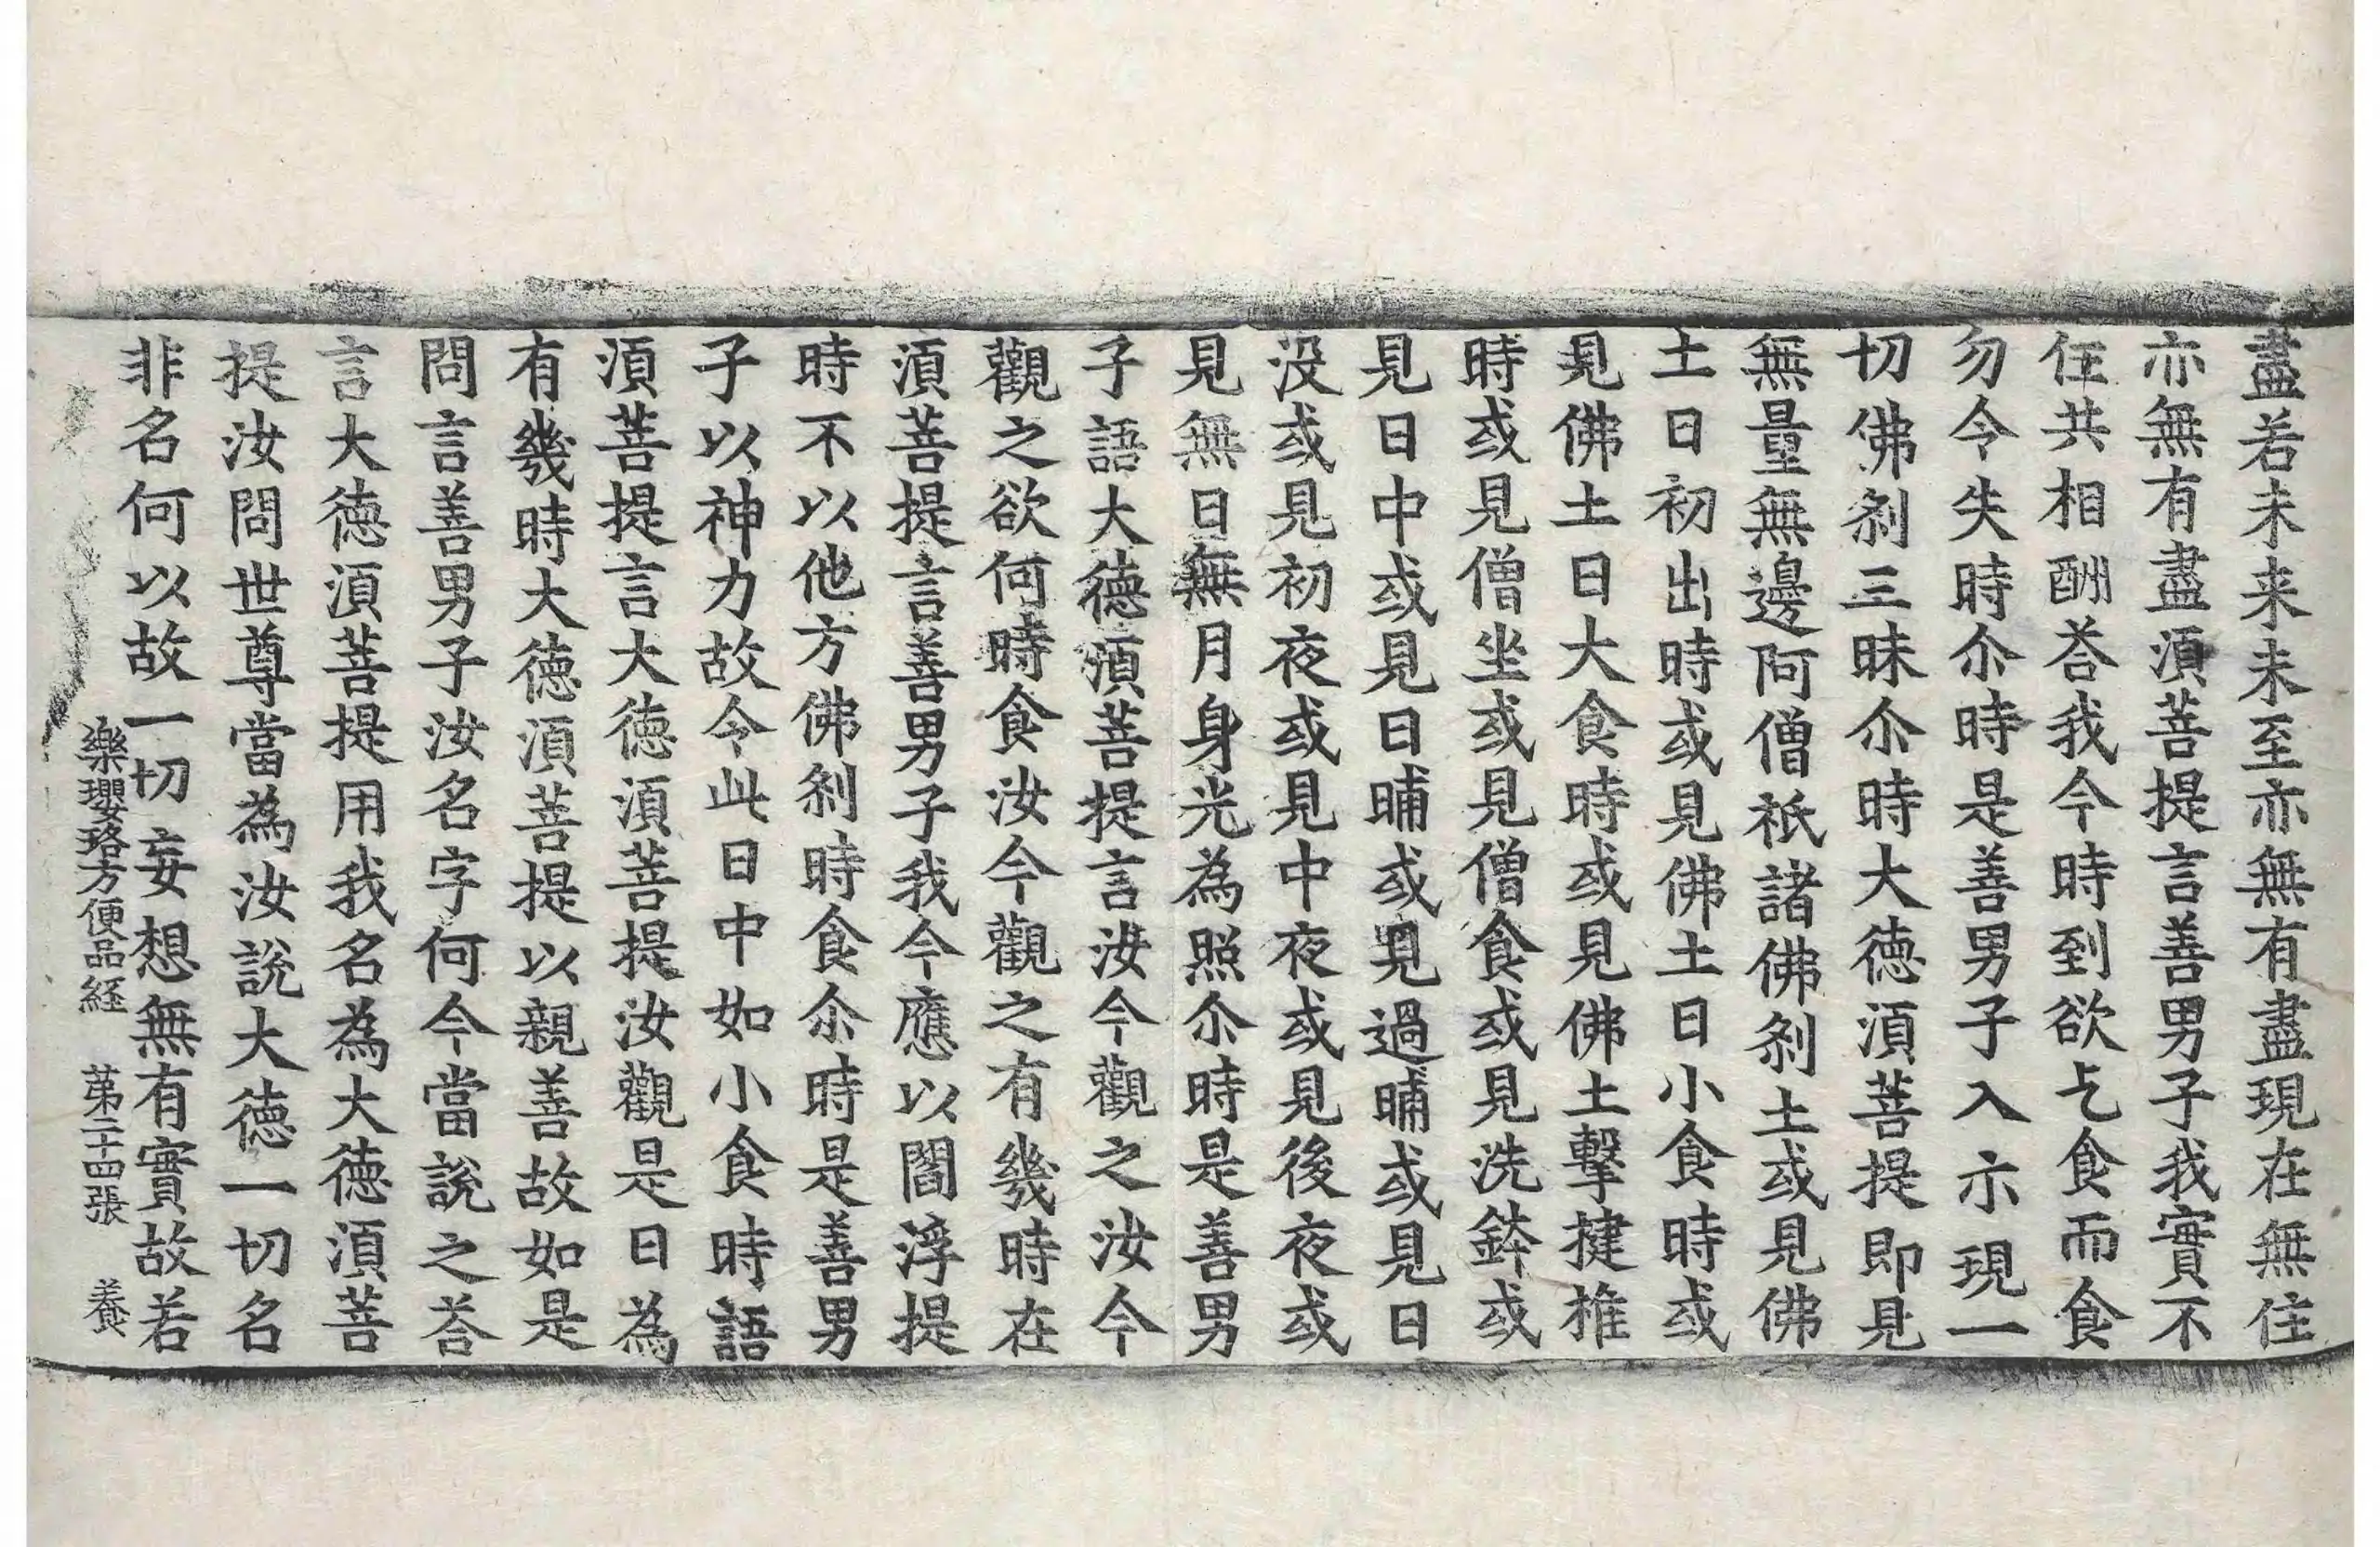 盡若未来未至亦無有盡現在無住
亦無有盡湏菩提言善男子我實不
住共相酬荅我今時到欲乞食而食
勿令失時尒時是善男子入示現一
切佛刹三昧尒時大德湏菩提即見
無量無邊阿僧祇諸佛刹土或見佛
土日初出時或見佛土日小食時或
見佛土日大食時或見佛土擊揵椎
時或見僧坐或見僧食或見洗鉢或
見日中或見日晡或見過晡或見日
没或見初夜或見中夜或見後夜或
見無日無月身光為照尒時是善男
子語大德湏菩提言汝今觀之汝今
觀之欲何時食汝今觀之有幾時在
湏菩提言善男子我今應以閻浮提
時不以他方佛刹時食尒時是善男
子以神力故令此日中如小食時語
湏菩提言大德湏菩提汝觀是日為
有幾時大德湏菩提以親善故如是
問言善男子汝名字何今當說之荅
言大德湏菩提用我名為大德湏菩
提汝問世尊當為汝說大德一切名
非名何以故一切妄想無有實故若
樂瓔珞方便品経　第二十四張　養